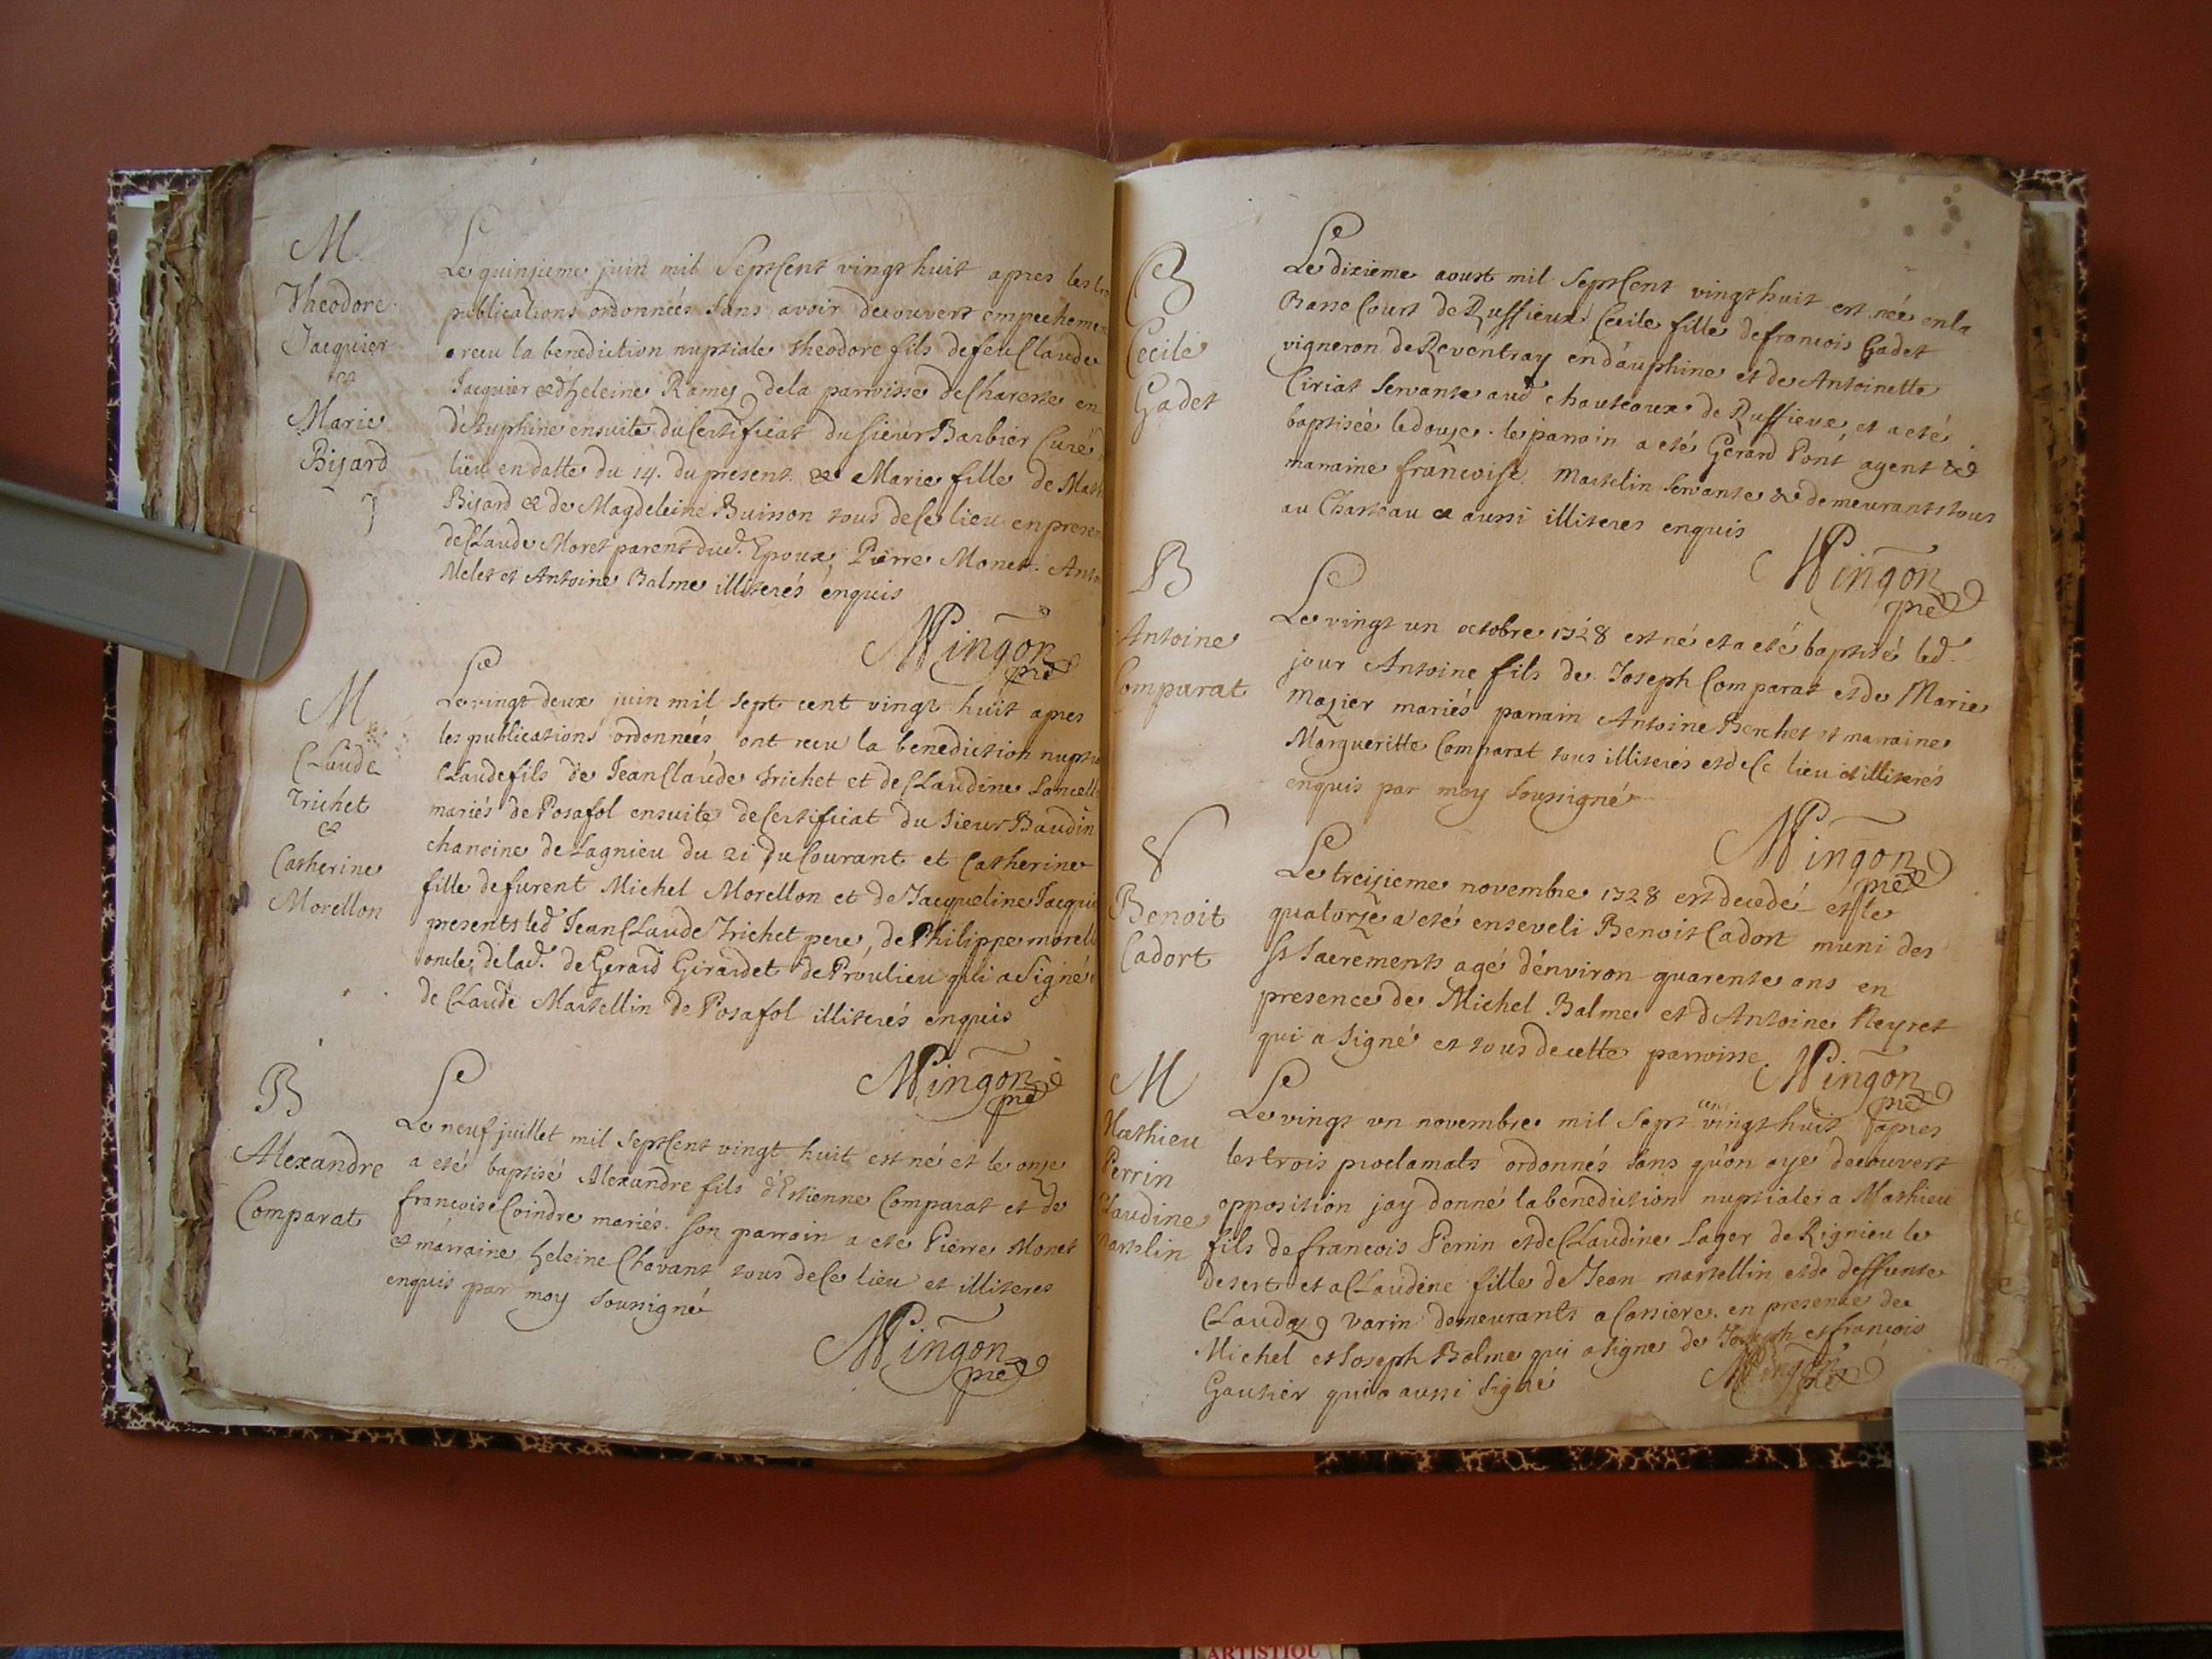 M
Theodore
Jacquier
&
Marie
Bisard
Le quinzieme juin mil Sept Cent vingt huit apres les
publications ordonnées sans avoir decouvert empechemen
a receu la benediction nuptiale theodore fils de feu Claude
Jacquier & d'heleine Ramey de la parroisse de Charette en
d'Auphine ensuite du Certificat du sieur Barbier Curé
lieu en datte du 14. du present & Marie fille de Mat
Bisard & de Magdeleine Buisson tous de Ce lieu en presen
de Claude Moret parent dud. Epoux, Pierre Monet. Anto
Melet et Antoine Balme illiterés enquis
Mingon
pre
M
Claude
Trichet
&
Catherine
Morellon
Le vingt deux juin mil sept cent vingt huit apres
les publications ordonnées ont receu la benediction nuptia
Claude fils de Jean Claude trichet et de Claudine Lancell
mariés de Posafol ensuite de Certificat du Sieur Baudin
chanoine de Lagnieu du 21 du Courant et Catherine
fille de furent Michel Morellon et de Jacqueline Jacqui
presents led Jean Claude Trichet pere, de Philippe morell
oncle, de lad. de Gerard Girardet de Proulieu qui a Signé
de Claude Martellin de Posafol illiterés enquis
Mingon
pre
B
Alexandre
Comparat
Le neuf juillet mil Sept Cent vingt huit est né et le onze
a eté baptisé Alexandre fils d'Estienne Comparat et de
francoise Coindre mariés. son parrain a eté Pierre Monet
& marraine heleine Chavant tous de Ce lieu et illiteres
enquis par moy soussigné
Mingon
pre
B
Cecile
Gadet
Le dixieme aoust mil Sept Cent vingt huit est née en la
Basse Court de Ruffieux Cecile fille de francois Gadet
vigneron de Reventray en d'auphine et de Antoinette
Ciriat Servante aud chauteaux de Ruffieux et a eté
baptisée le douze. le parrain a eté Gerard Pont agent &
marraine francoise Martelin servante & demeurants tous
au Chasteau & aussi illiteres enquis
Mingon
pre
B
Antoine
Comparat
Le vingt un octobre 1728 est né et a eté baptisé led.
jour Antoine fils de Joseph Comparat et de Marie
Mazier mariés parrain Antoine Berchet et marraine
Margueritte Comparat tous illiterés et de Ce lieu et illiterés
enquis par moy Soussigné
Mingon
pre
S
Benoit
Cadort
Le treizieme novembre 1728 est decedé et le
quatorze a eté enseveli Benoit Cadort muni des
Sts Sacrements agé d'environ quarente ans en
presence de Michel Balme et d Antoine Neyret
qui a Signé et tous de cette parroisse
Mingon
pre
M
Mathieu
Perrin
Claudine
Martelin
Le vingt un novembre mil Sept cent vingt huit apres
les trois proclamats ordonnés sans qu'on aye decouvert
opposition jay donné la benediction nuptiale a Mathieu
fils de francois Perrin et de Claudine Lager de Rignieu le
desert et a Claudine fille de Jean martellin et de deffunte
Clauda Varin demeurants a Cassiere. en presence de
Michel et Joseph Balme qui a signe de Joseph et francois
Gautier qui a aussi Signé
Mingon
pre
ARTISTIQU